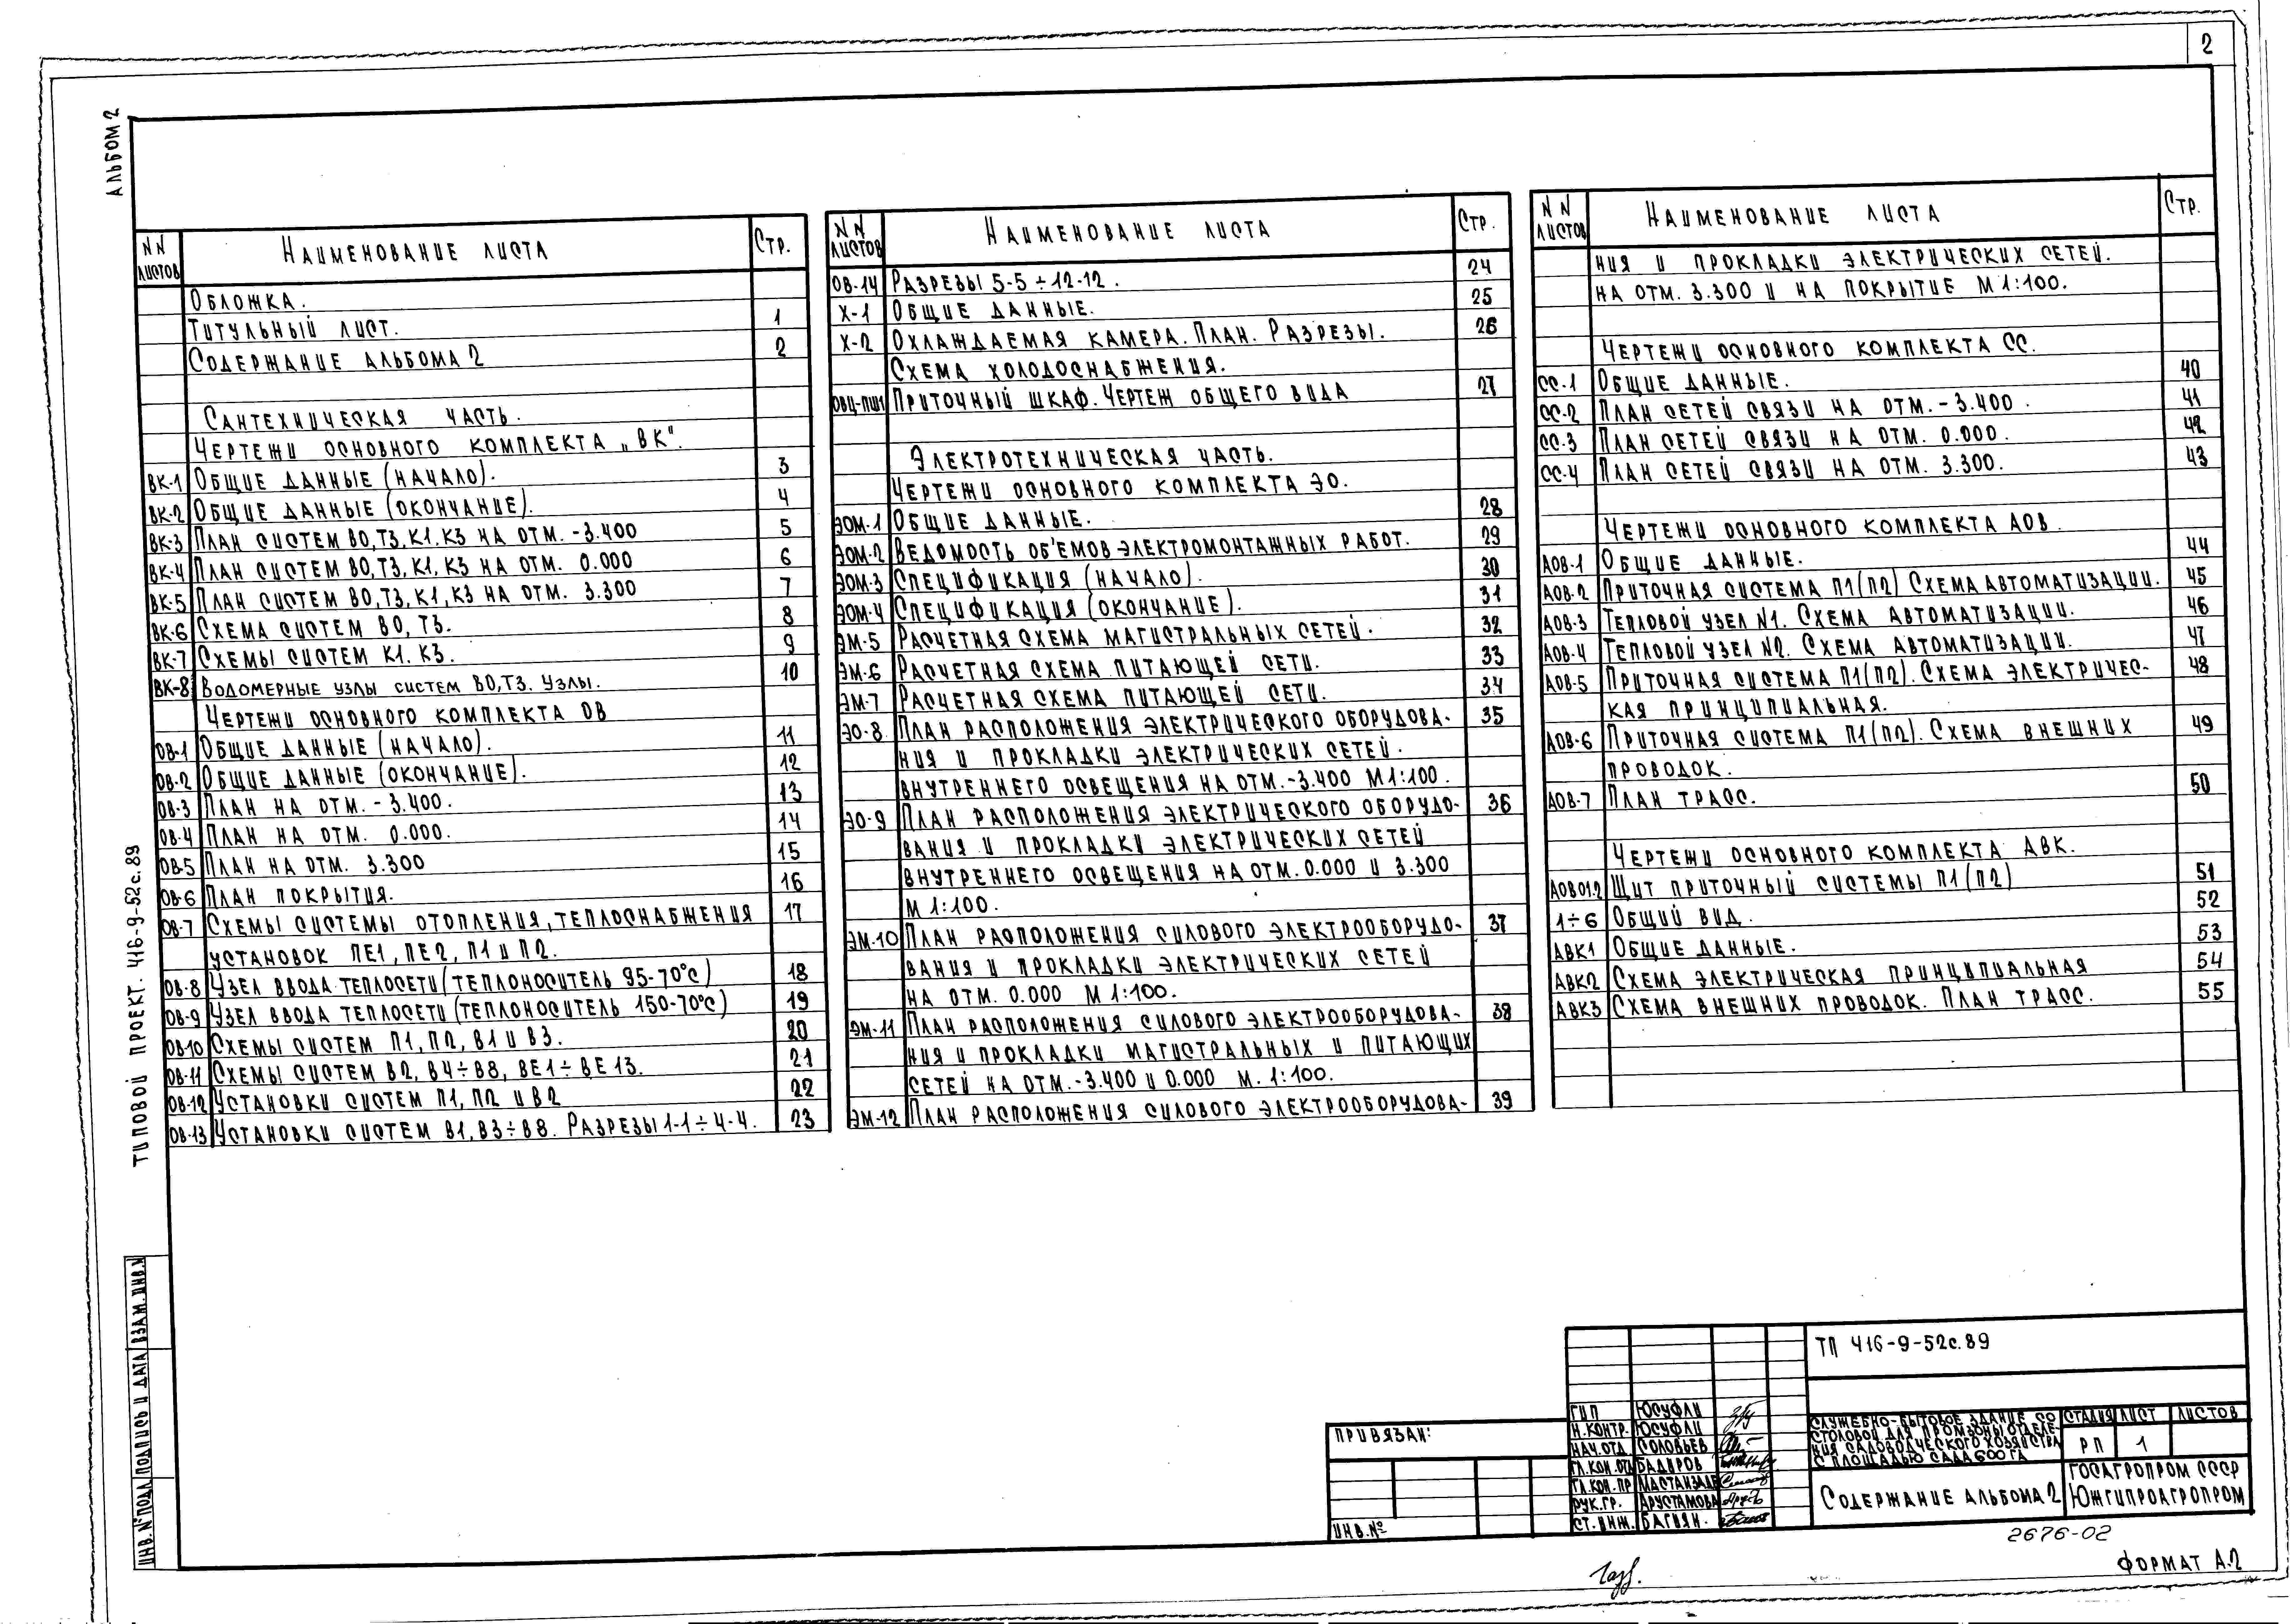 2
АЛЬБОМ 2
ТИПОВОЙ ПРОЕКТ. 416-9-52с.89
ИНВ.№ПОДЛ ПОДПИСЬ И ДАТА ВЗАМ.ИНВ.N
NN ЛИСТОВ НАИМЕНОВАНИЕ ЛИСТА СТР.
ОБЛОЖКА.
ТИТУЛЬНЫЙ ЛИСТ. 1
СОДЕРЖАНИЕ АЛЬБОМА 2 2
САНТЕХНИЧЕСКАЯ ЧАСТЬ.
ЧЕРТЕЖИ ОСНОВНОГО КОМПЛЕКТА „ВК".
ВК-1 ОБЩИЕ ДАННЫЕ (НАЧАЛО). 3
ВК-2 ОБЩИЕ ДАННЫЕ (ОКОНЧАНИЕ). 4
ВК-3 ПЛАН СИСТЕМ В0,Т3,К1.К3 НА ОТМ.-3.400 5
ВК-4 ПЛАН СИСТЕМ В0,Т3,К1,К3 НА ОТМ. 0.000 6
ВК-5 ПЛАН СИСТЕМ В0,Т3,К1,К3 НА ОТМ. 3.300 7
ВК-6 СХЕМА СИСТЕМ В0,Т3. 8
ВК-7 СХЕМЫ СИСТЕМ К1.К3. 9
ВК-8 ВОДОМЕРНЫЕ УЗЛЫ СИСТЕМ В0,Т3. УЗЛЫ. 10
ЧЕРТЕЖИ ОСНОВНОГО КОМПЛЕКТА ОВ
ОВ-1 ОБЩИЕ ДАННЫЕ (НАЧАЛО). 11
ОВ-2 ОБЩИЕ ДАННЫЕ (ОКОНЧАНИЕ). 12
ОВ-3 ПЛАН НА ОТМ.-3.400. 13
ОВ-4 ПЛАН НА ОТМ. 0.000. 14
ОВ-5 ПЛАН НА ОТМ. 3.300 15
ОВ-6 ПЛАН ПОКРЫТИЯ. 16
ОВ-7 СХЕМЫ СИСТЕМЫ ОТОПЛЕНИЯ, ТЕПЛОСНАБЖЕНИЯ 17
УСТАНОВОК ПЕ1, ПЕ2, П1 И П2.
ОВ-8 УЗЕЛ ВВОДА ТЕПЛОСЕТИ (ТЕПЛОНОСИТЕЛЬ 95-70°С) 18
ОВ-9 УЗЕЛ ВВОДА ТЕПЛОСЕТИ (ТЕПЛОНОСИТЕЛЬ 150-70°С) 19
ОВ-10 СХЕМЫ СИСТЕМ П1, П2, В1 И В3. 20
ОВ-11 СХЕМЫ СИСТЕМ В2, В4÷В8, ВЕ1÷ВЕ13. 21
ОВ-12 УСТАНОВКИ СИСТЕМ П1, П2 И В2 22
ОВ-13 УСТАНОВКИ СИСТЕМ В1, В3÷В8. РАЗРЕЗЫ 1-1÷4-4. 23
NN ЛИСТОВ НАИМЕНОВАНИЕ ЛИСТА СТР.
ОВ-14 РАЗРЕЗЫ 5-5÷12-12. 24
Х-1 ОБЩИЕ ДАННЫЕ. 25
Х-2 ОХЛАЖДАЕМАЯ КАМЕРА. ПЛАН. РАЗРЕЗЫ. 26
СХЕМА ХОЛОДОСНАБЖЕНИЯ.
ОВИ-ПШ1 ПРИТОЧНЫЙ ШКАФ. ЧЕРТЕЖ ОБЩЕГО ВИДА 27
ЭЛЕКТРОТЕХНИЧЕСКАЯ ЧАСТЬ.
ЧЕРТЕЖИ ОСНОВНОГО КОМПЛЕКТА ЭО.
ЭОМ-1 ОБЩИЕ ДАННЫЕ. 28
ЭОМ-2 ВЕДОМОСТЬ ОБ'ЕМОВ ЭЛЕКТРОМОНТАЖНЫХ РАБОТ. 29
ЭОМ-3 СПЕЦИФИКАЦИЯ (НАЧАЛО). 30
ЭОМ-4 СПЕЦИФИКАЦИЯ (ОКОНЧАНИЕ). 31
ЭМ-5 РАСЧЕТНАЯ СХЕМА МАГИСТРАЛЬНЫХ СЕТЕЙ. 32
ЭМ-6 РАСЧЕТНАЯ СХЕМА ПИТАЮЩЕЙ СЕТИ. 33
ЭМ-7 РАСЧЕТНАЯ СХЕМА ПИТАЮЩЕЙ СЕТИ. 34
ЭО-8 ПЛАН РАСПОЛОЖЕНИЯ ЭЛЕКТРИЧЕСКОГО ОБОРУДОВА- 35
НИЯ И ПРОКЛАДКИ ЭЛЕКТРИЧЕСКИХ СЕТЕЙ.
ВНУТРЕННЕГО ОСВЕЩЕНИЯ НА ОТМ.-3.400 М1:100.
ЭО-9 ПЛАН РАСПОЛОЖЕНИЯ ЭЛЕКТРИЧЕСКОГО ОБОРУДО- 36
ВАНИЯ И ПРОКЛАДКИ ЭЛЕКТРИЧЕСКИХ СЕТЕЙ
ВНУТРЕННЕГО ОСВЕЩЕНИЯ НА ОТМ. 0.000 И 3.300
М 1:100.
ЭМ-10 ПЛАН РАСПОЛОЖЕНИЯ СИЛОВОГО ЭЛЕКТРООБОРУДО- 37
ВАНИЯ И ПРОКЛАДКИ ЭЛЕКТРИЧЕСКИХ СЕТЕЙ
НА ОТМ. 0.000 М 1:100.
ЭМ-11 ПЛАН РАСПОЛОЖЕНИЯ СИЛОВОГО ЭЛЕКТРООБОРУДОВА- 38
НИЯ И ПРОКЛАДКИ МАГИСТРАЛЬНЫХ И ПИТАЮЩИХ
СЕТЕЙ НА ОТМ.-3.400 И 0.000 М. 1:100.
ЭМ-12 ПЛАН РАСПОЛОЖЕНИЯ СИЛОВОГО ЭЛЕКТРООБОРУДОВА- 39
NN ЛИСТОВ НАИМЕНОВАНИЕ ЛИСТА СТР.
НИЯ И ПРОКЛАДКИ ЭЛЕКТРИЧЕСКИХ СЕТЕЙ.
НА ОТМ. 3.300 И НА ПОКРЫТИЕ М 1:100.
ЧЕРТЕЖИ ОСНОВНОГО КОМПЛЕКТА СС.
СС-1 ОБЩИЕ ДАННЫЕ. 40
СС-2 ПЛАН СЕТЕЙ СВЯЗИ НА ОТМ.-3.400. 41
СС-3 ПЛАН СЕТЕЙ СВЯЗИ НА ОТМ. 0.000. 42
СС-4 ПЛАН СЕТЕЙ СВЯЗИ НА ОТМ. 3.300. 43
ЧЕРТЕЖИ ОСНОВНОГО КОМПЛЕКТА АОВ.
АОВ-1 ОБЩИЕ ДАННЫЕ. 44
АОВ-2 ПРИТОЧНАЯ СИСТЕМА П1(П2) СХЕМА АВТОМАТИЗАЦИИ. 45
АОВ-3 ТЕПЛОВОЙ УЗЕЛ N1. СХЕМА АВТОМАТИЗАЦИИ. 46
АОВ-4 ТЕПЛОВОЙ УЗЕЛ N2. СХЕМА АВТОМАТИЗАЦИИ. 47
АОВ-5 ПРИТОЧНАЯ СИСТЕМА П1(П2). СХЕМА ЭЛЕКТРИЧЕС- 48
КАЯ ПРИНЦИПИАЛЬНАЯ.
АОВ-6 ПРИТОЧНАЯ СИСТЕМА П1(П2). СХЕМА ВНЕШНИХ 49
ПРОВОДОК.
АОВ-7 ПЛАН ТРАСС. 50
ЧЕРТЕЖИ ОСНОВНОГО КОМПЛЕКТА АВК.
АОВ01.2 ЩИТ ПРИТОЧНЫЙ СИСТЕМЫ П1(П2) 51
1÷6 ОБЩИЙ ВИД. 52
АВК1 ОБЩИЕ ДАННЫЕ. 53
АВК2 СХЕМА ЭЛЕКТРИЧЕСКАЯ ПРИНЦИПИАЛЬНАЯ 54
АВК3 СХЕМА ВНЕШНИХ ПРОВОДОК. ПЛАН ТРАСС. 55
ПРИВЯЗАН:
ИНВ.№
ГИП ЮСУФЛИ
Н.КОНТР. ЮСУФЛИ
НАЧ.ОТД СОЛОВЬЕВ
ГЛ.КОН.ОТД БАДИРОВ
ГЛ.КОН.ПР МАСТАНЗАДЕ
РУК.ГР. АРУСТАМОВА
СТ.ИНЖ. БАГИЯН.
ТП 416-9-52с.89
СЛУЖЕБНО-БЫТОВОЕ ЗДАНИЕ СО
СТОЛОВОЙ ДЛЯ ПРОМЗОНЫ ОТДЕЛЕ-
НИЯ САДОВОДЧЕСКОГО ХОЗЯЙСТВА
С ПЛОЩАДЬЮ САДА 600 ГА
СТАДИЯ ЛИСТ ЛИСТОВ
РП 1
СОДЕРЖАНИЕ АЛЬБОМА 2
ГОСАГРОПРОМ СССР
ЮЖГИПРОАГРОПРОМ
2676-02
ФОРМАТ А.2